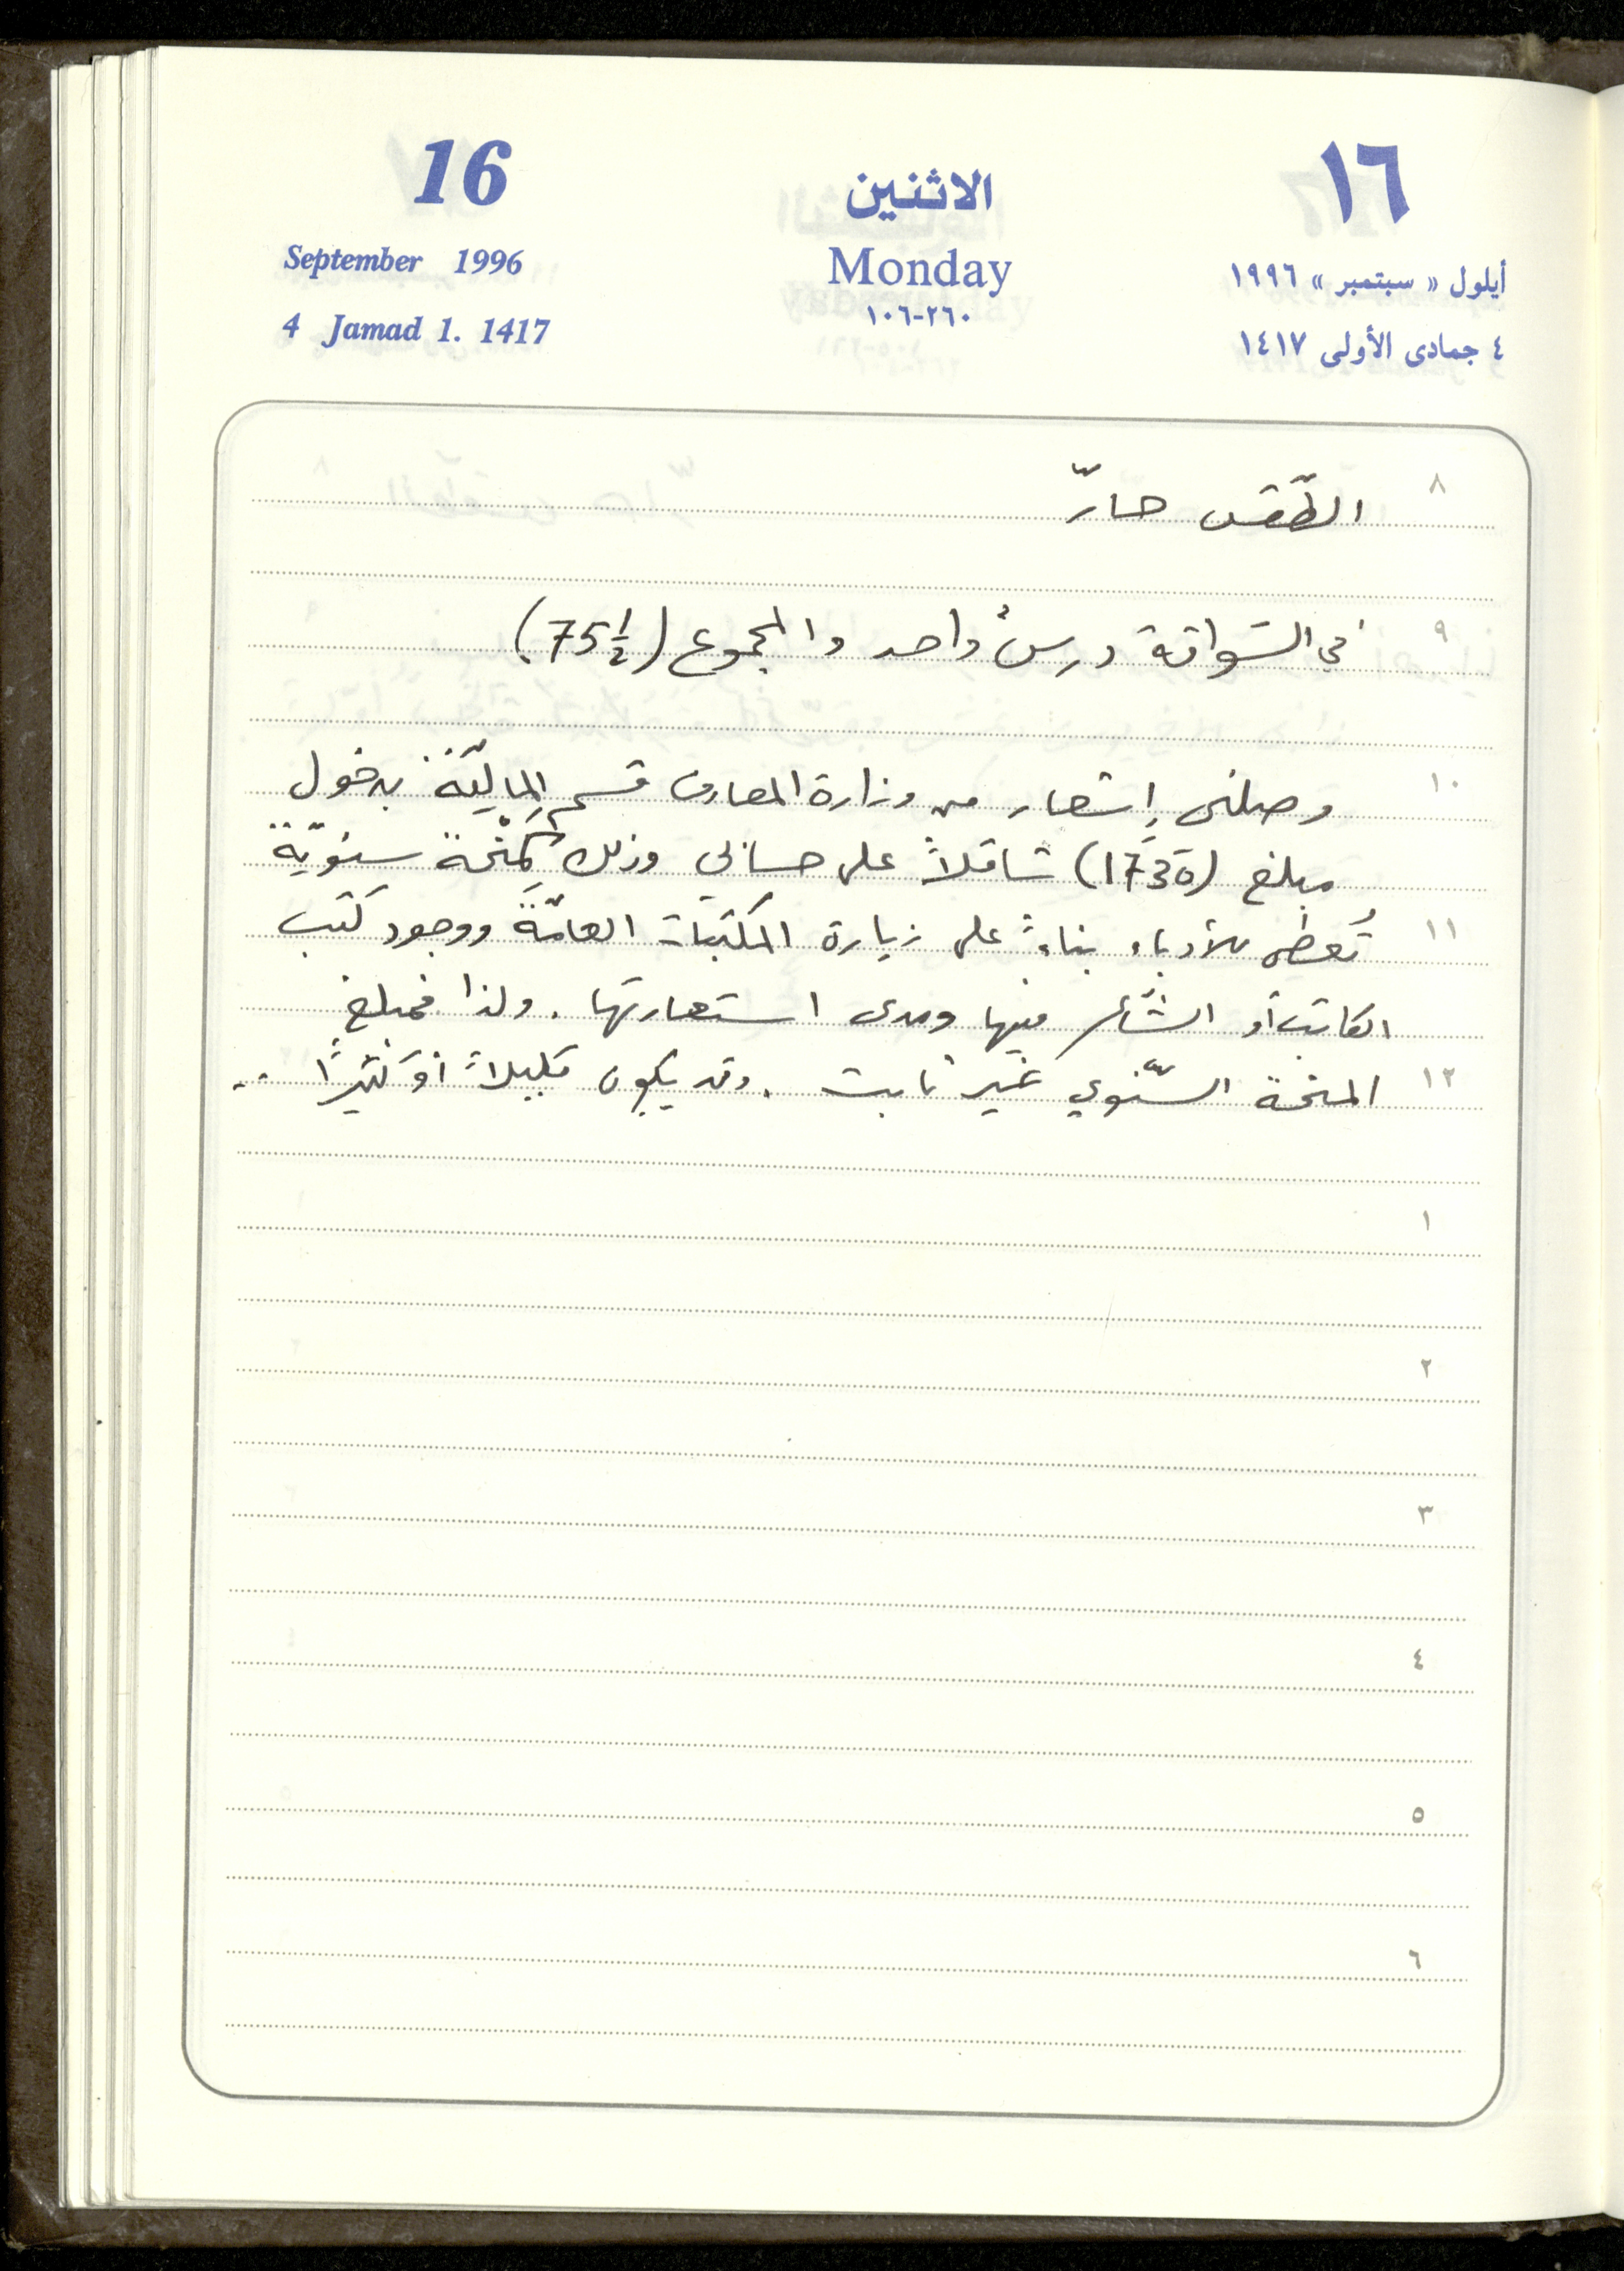 16
September 1996
4 Jamad 1. 1417
الاثنين
Monday
١٠٦-٢٦٠
١٦
أيلول « سبتمبر » ١٩٩٦
٤ جمادى الأولى ١٤١٧
٨ الطّقس حارّ
٩ في السّواقة درسٌ واحد والمجموع (75½)
١٠ وصلني إِشعار من وزارة المعارف قسم الماليّة بدخول
مبلغ (1735) شاقلاً على حسابي وذلك كمِنْحة سنويّة
١١ تُعطى للأدباء بناءً على زيارة المكتبات العامّة ووجود كتب
الكاتب أو الشّاعر فيها ومدى استعارتها. ولذا فمبلغ
١٢ المنحة السّنوي غير ثابت. وقد يكون قليلاً أو كثيرًا ..
١
٢
٣
٤
٥
٦